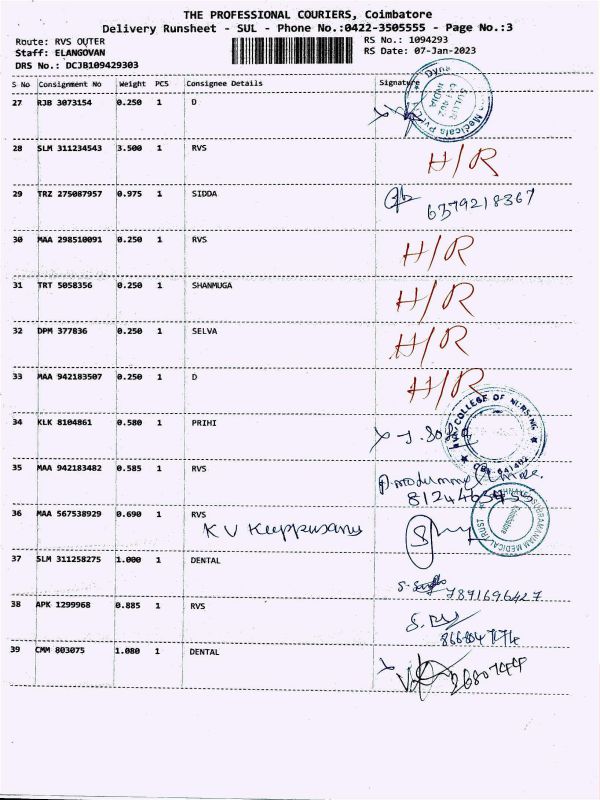 THE PROFESSIONAL COURIERS, Coimbatore
Delivery Runsheet - SUL - Phone No.:0422-3505555 - Page No.:3
Route: RVS OUTER
RS No.: 1094293
Staff: ELANGOVAN
RS Date: 07-Jan-2023
DRS No.: DCJB109429303
S No Consignment No Weight PCS Consignee Details Signature
27 RJB 3073154 0.250 1 D
SULUR
641 402
INDIA
28 SLM 311234543 3.500 1 RVS H/R
29 TRZ 275087957 0.975 1 SIDDA 6379218367
30 MAA 298510091 0.250 1 RVS H/R
31 TRT 5058356 0.250 1 SHANMUGA H/R
32 DPM 377836 0.250 1 SELVA H/R
33 MAA 942183507 0.250 1 D H/R
34 KLK 8104861 0.580 1 PRIHI
COLLEGE OF NURSING
35 MAA 942183482 0.585 1 RVS
36 MAA 567538929 0.690 1 RVS
37 SLM 311258275 1.000 1 DENTAL 7891696427
38 APK 1299968 0.885 1 RVS
39 CMM 803075 1.080 1 DENTAL